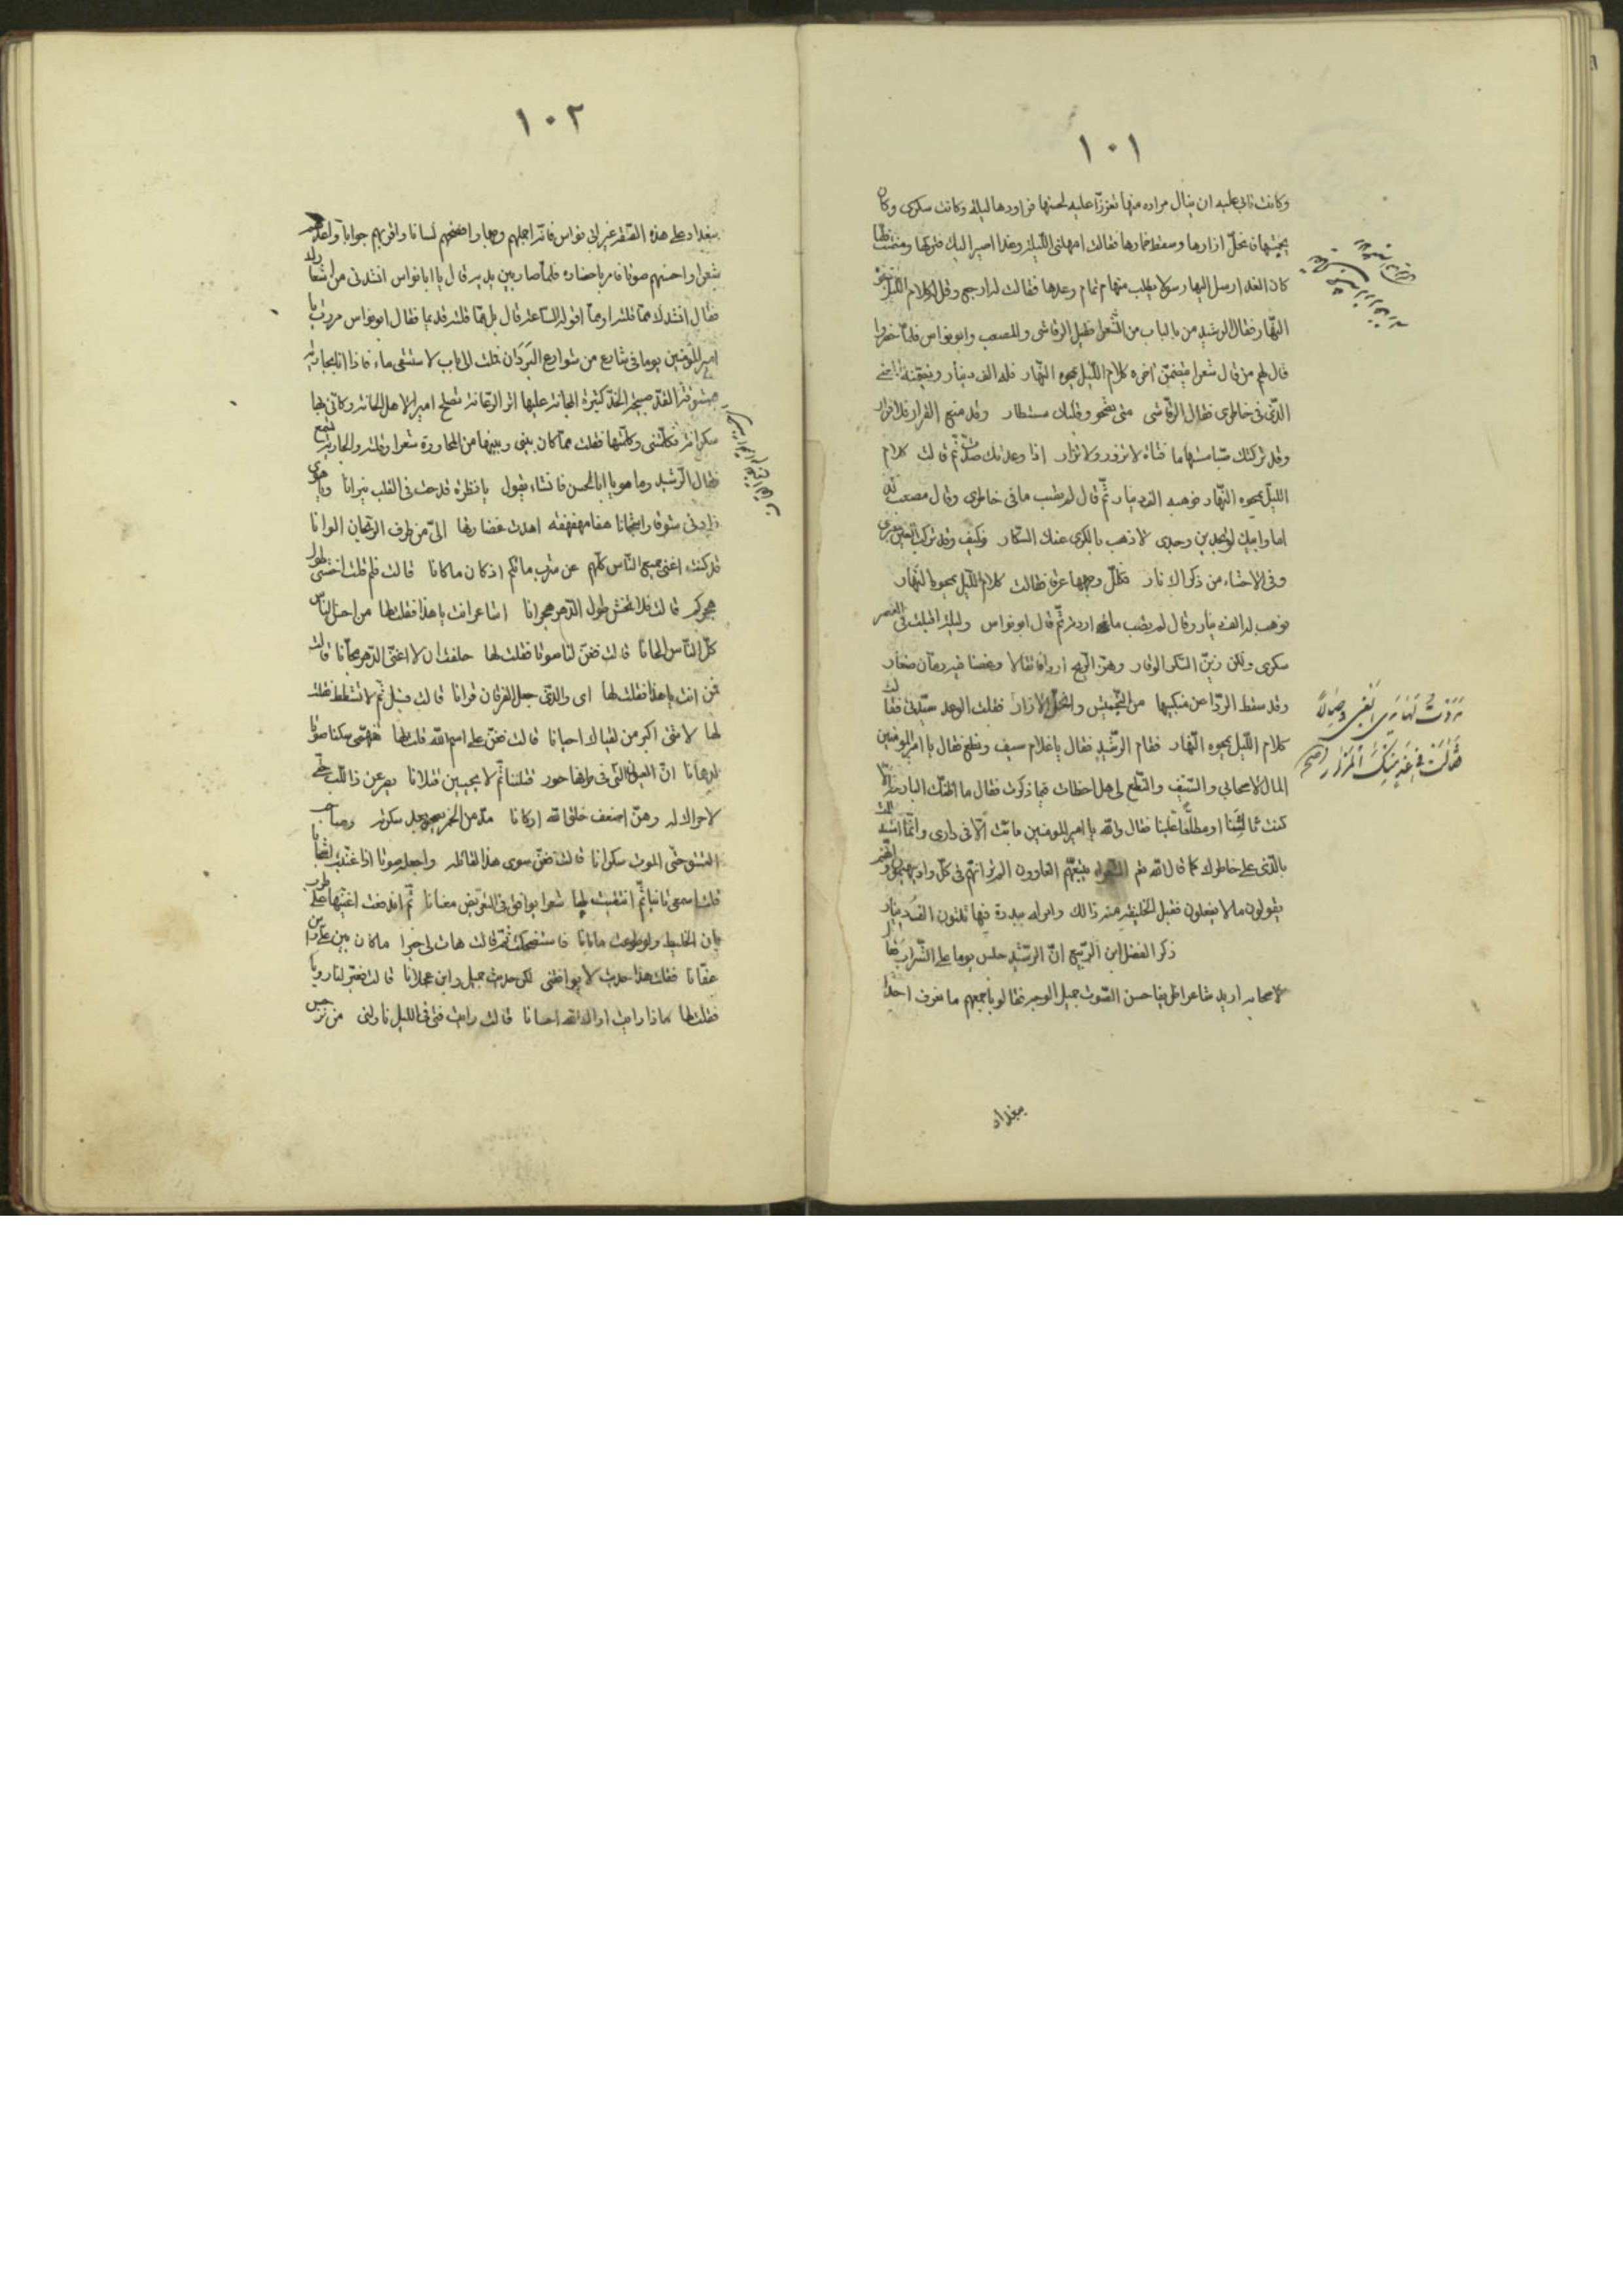 ١٠١
وكانت تابى عليه ان ينال مراده منها تعززا عليه لحسنها فراودها ليلة وكانت سكرى وكان
يجمشها فانحل ازارها وسقط خمارها فقالت امهلنى الليلة وغدا اصير اليك فتركها ومضت فلما
كان الغد ارسل اليها رسولا يطلب منها تمام وعدها فقالت له ارجع وقل له كلام الليل يمحوه
النهار فقال الرشيد من بالباب من الشعراء فقيل الرقاشى والمصعب وابو نواس فلما حضروا
قال لهم من قال شعرا يتضمن اخره كلام الليل يمحوه النهار فله الف دينار
الذى فى خاطرى فقال الرقاشى متى تصحو وقلبك مستطار وقد منع القرار فلا قرار
وقد تركتك صبا مستهاما فتاة لا تزور ولا تزار اذا وعدتك صدت ثم قالت كلام
الليل يمحوه النهار فوهبه الف دينار ثم قال لم يصب ما فى خاطرى وقال مصعب
اما وابيك لو تجدين وجدى لاذهب بالكرى عنك السكار فكيف وقد تركت العين
وفى الاحشاء من ذكراك نار وجهها عرق فقالت كلام الليل يمحوه النهار
فوهب له الف دينار وقال لم يصب ما اردت ثم قال ابو نواس وليلة اقبلت فى القصر
سكرى ولكن زين السكر الوقار وهز الريح اردافا ثقالا وغصنا فيه رمان صغار
وقد سقط الردا عن منكبيها من التجميش وانحل الازار فقلت الوعد سيدتى فقالت
كلام الليل يمحوه النهار فقام الرشيد فقال يا غلام سيف ونطع فقال يا امير المؤمنين
المال لاصحابى والسيف والنطع لى هل اخطات فيما ذكرت فقال ما اظنك البارحة الا
كنت ثالثنا او مطلعا علينا فقال والله يا امير المؤمنين ما بت الا فى دارى وانما
بالذى على خاطرك كما قال الله تع الشعراء يتبعهم الغاوون الم تر انهم فى كل واد يهيمون وانهم
يقولون ما لا يفعلون فقبل الخليفة منه ذالك وامر له ببدرة فيها ثلثون الف دينار
ذكر الفضل ابن الربيع ان الرشيد جلس يوما على الشراب فقال
لاصحابه اريد شاعرا ظريفا حسن الصوت جميل الوجه فقالوا باجمعهم ما نعرف احدا
فقالت فى غد منك المزار صح
بغداد
١٠٢
ببغداد على هذه الصفة غير ابى نواس فانه اجملهم وجها وافصحهم لسانا واقربهم جوابا
شعرا واحسنهم صوتا فامر باحضاره فلما صار بين يديه قال يا ابا نواس انشدنى من اشعارك
فقال انشدك مما قلته او مما اقوله الساعة قال بل مما قلته قديما فقال ابو نواس مررت يا
امير المؤمنين يوما فى شارع من شوارع البردان فملت الى باب لاستسقى ماء فاذا انا بجارية
القد الخد كثيرة عليها اثر تصلح اميرا لاهل وكانى بها
سكرانة فكلمتنى وكلمتها فقلت مما كان بينى وبينها من المحاورة شعرا وقلته والجارية تسمع
فقال الرشيد وما هو يا ابا الحسن فانشاء يقول يا نظرة قدحت فى القلب نيرانا
زادنى شوقا واشجانا هفا مهفهفه اهدت غضارتها الى من طرف الريحان الوانا
قد كنت اغنى جميع الناس كلهم عن شرب مائكم اذ كان ما كانا قالت فلم قلت اخشى طول
هجركم قالت فلا تخش طول الدهر هجرانا اشاعر انت يا هذا فقلت لها من احسن الناس
كل الناس الحانا قالت فغن لنا صوتا فقلت لها حلفت ان لا اغنى الدهر مجانا قالت
فمن انت يا هذا فقلت لها اى والذى جعل الفرقان قرانا قالت فسل ثم لا تشطط فقلت
لها لا شى اكبر من لقياك احيانا قالت فغن على اسم الله قلت لها صوتا
ان العيون التى فى طرفها حور قتلننا ثم لا يحيين قتلانا يصرعن ذا اللب حتى
لا حراك له وهن اضعف خلق الله اركانا من الخمر
العشق حتى الموت سكرانا قالت فغن سوى هذا لقائله واجعله صوتا اذا غنيت
قلت اسمعى ثانيا ثم انتقيت لها شعرا يوافق فى التقريض معنانا ثم اندفعت اغنيها على طرب
بان الخليط ولو طوعت ما بانا فاستضحكت ثم قالت هات لى خبرا ما كان بين
عفانا فقلت هذا حديث لا يوافقنى لكن حديث جميل وابن عجلانا قالت فعبر لنا رؤيا
فقلت لها ماذا رايت اراك الله احسانا قالت رايت فتى فى الليل ناولنى من نرجس